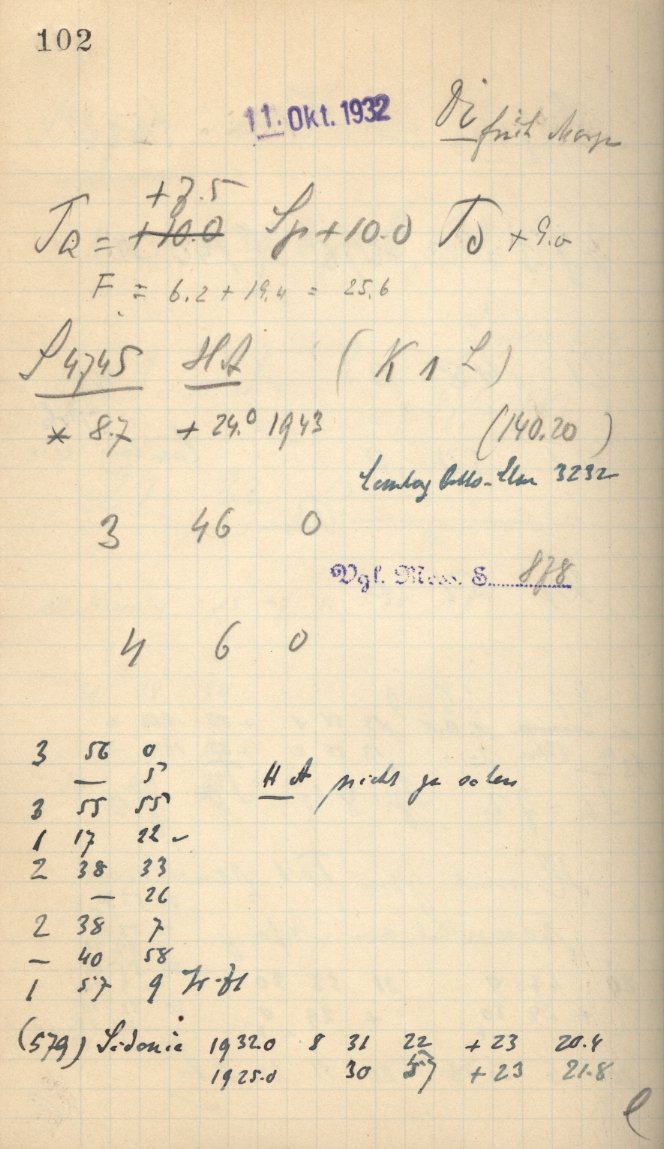 102
11. Okt. 1932 Di früh Morgen
+7.5
Ta = +10.0 Sp +10.0 Td +9.0
F = 6.2 + 19.4 = 25.6
S 4745 HA (K 1 L)
* 8.7 + 24.0 1943 (140.20)
3232
3 46 0
Vgl. Mess. S. 878
4 6 0
3 56 0
— 5
3 55 55
HA nicht zu sehen
1 17 22
2 38 33
— 26
2 38 7
— 40 58
1 57 9
(579) Sidonia 1932.0 8 31 22 +23 20.4
1925.0 30 57 +23 21.8